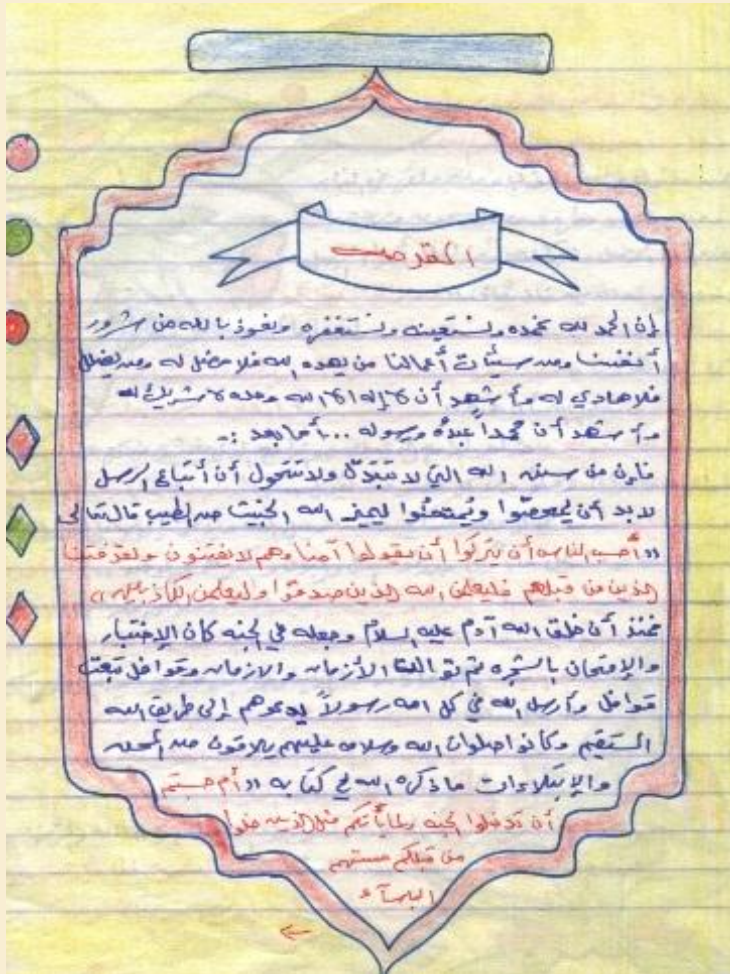 المقدمه
إن الحمد لله نحمده ونستعينه ونستغفره ونعوذ بالله من شرور
أنفسنا ومن سيئات أعمالنا من يهده الله فلا مضل له ومن يضلل
فلا هادي له وأشهد أن لا إله إلا الله وحده لا شريك له
وأشهد أن محمداً عبده ورسوله .. أما بعد :-
فإن من سنن الله التي لا تتبدل ولا تتحول أن أتباع الرسل
لا بد أن يمحصوا ويمتحنوا ليميز الله الخبيث من الطيب قال تعالى
((أحسب الناس أن يتركوا أن يقولوا آمنا وهم لا يفتنون ولقد فتنا
الذين من قبلهم فليعلمن الله الذين صدقوا وليعلمن الكاذبين))
فمنذ أن خلق الله آدم عليه السلام وجعله في الجنه كان الإختبار
والإمتحان بالشجره ثم توالت الأزمان والازمان وقوافل تبعت
قوافل وأرسل الله في كل امه رسولاً يدعوهم إلى طريق الله
المستقيم وكانوا صلوات الله وسلامه عليهم يلاقون من المحن
والإبتلاءات ما ذكره الله في كتابه ((أم حسبتم
أن تدخلوا الجنه ولما يأتكم مثل الذين خلوا
من قبلكم مستهم
البأسآء